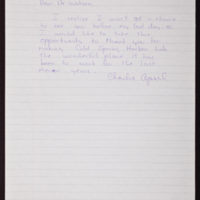 Dear Dr Watson,
I realise I won't get a chance
to see you before my last day so
I would like to take this
opportunity to thank you for
making Cold Spring Harbor Lab
the wonderful place it has
been to work for the last
years.
Charlie